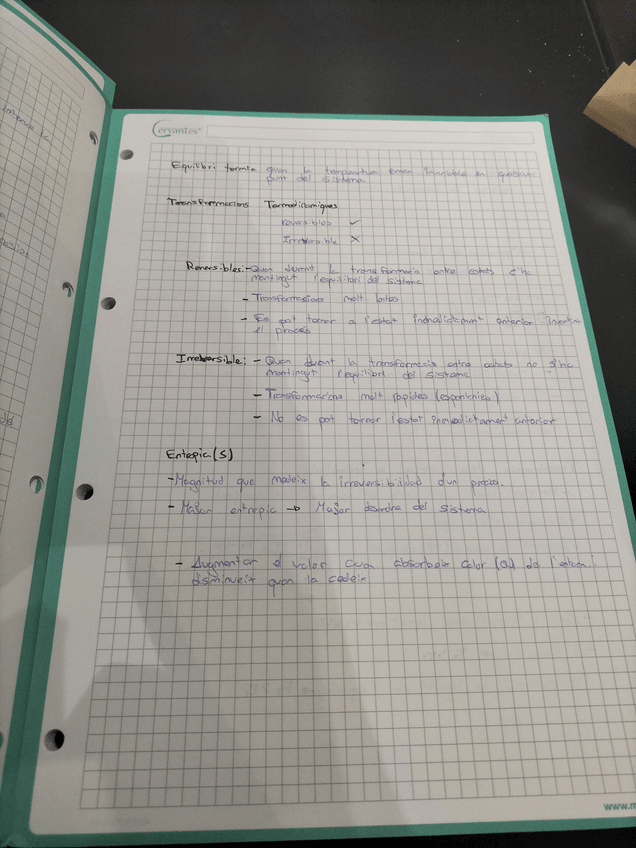 Cervantes
Equilibri tèrmic quan la temperatura roman invariable en qualsevol
punt del sistema
Transformacions Termodinamiques
reversibles ✓
Irreversible X
Reversibles: - Quan durant la transformacio entre estats s'ha
mantingut l'equilibri del sistema
- Transformacions molt lentes
- Es pot tornar a l'estat anterior invertint
el procés
Irreversible: - Quan durant la transformacio entre estats no s'ha
mantingut l'equilibri del sistema
- Transformacions molt rapides (espontanies)
- No es pot tornar l'estat immediatament anterior
Entropia (S)
- Magnitud que madeix la irreversibilidad d'un procés.
- Major entropia → Major desordre del sistema
- Augmentar el valor quan absorbeix calor (Q) de l'entorn i
disminueix quan la cedeix
www.m